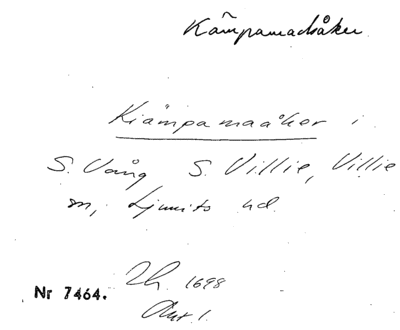 Kämpamadsåker
Kiämpamaåker i
S. Vång S. Villie, Villie
sn, Ljunits hd.
Lh. 1698
Nr 7464.
Akt 1.